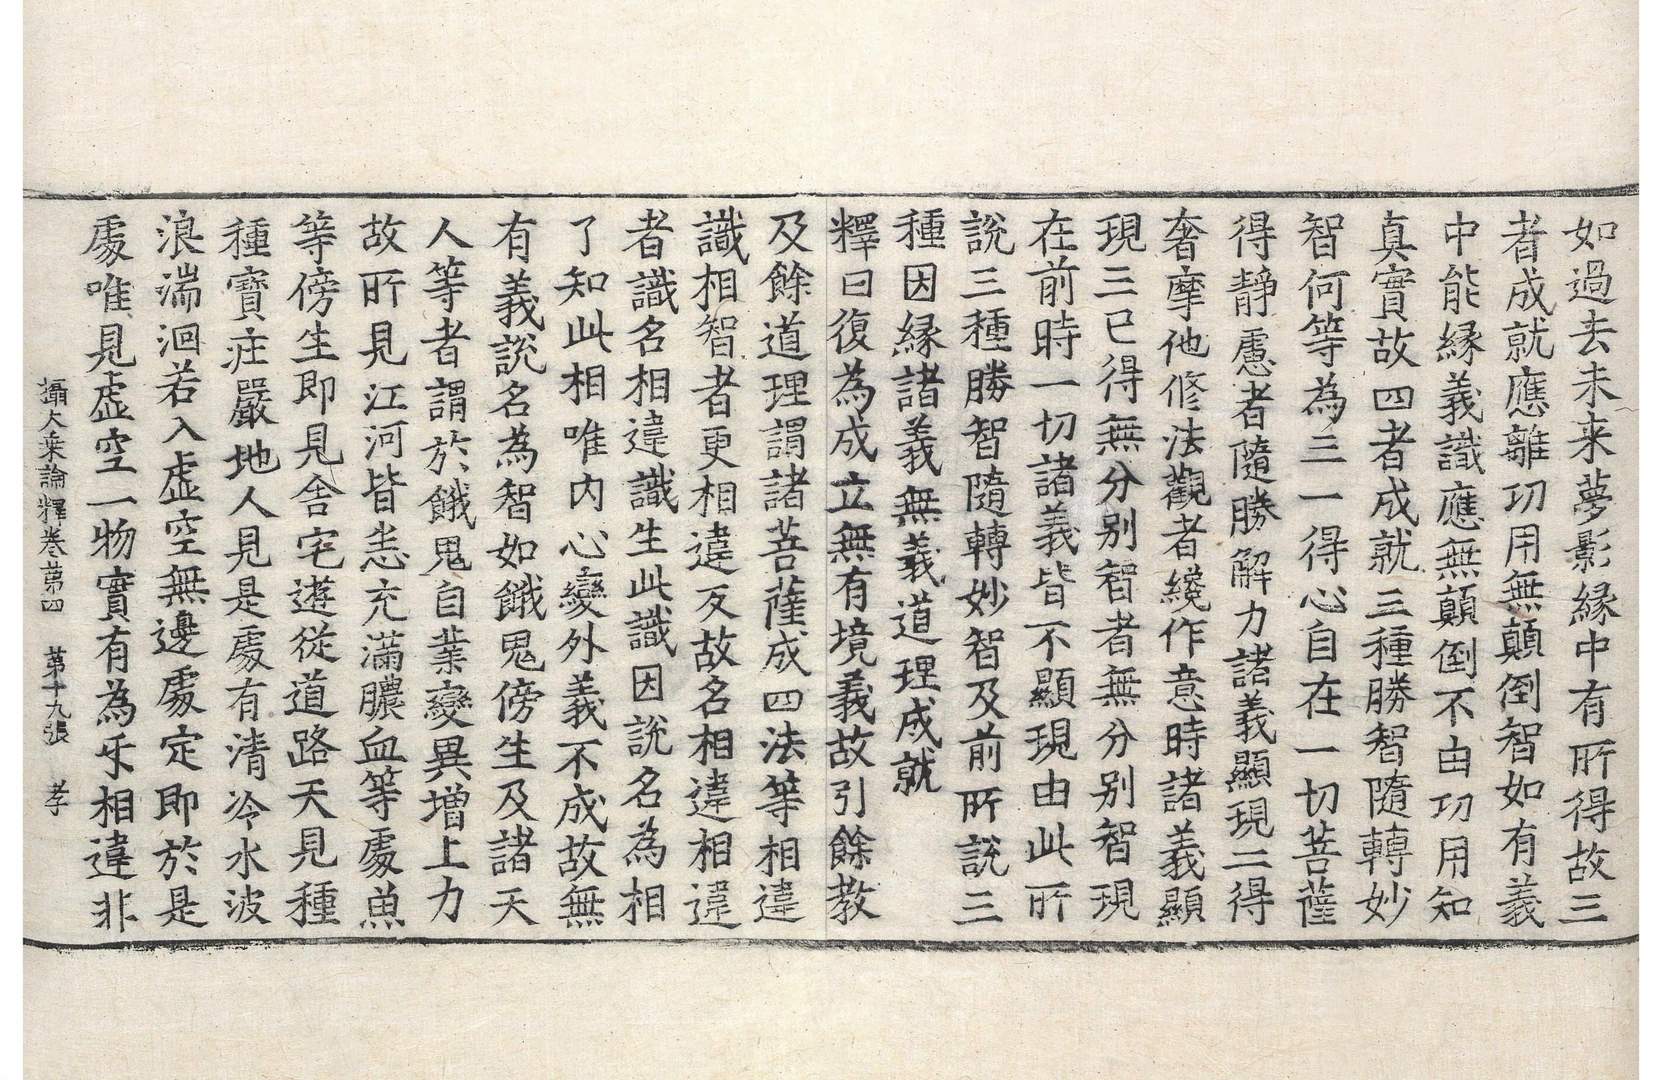 如過去未来夢影縁中有所得故三
者成就應離功用無顛倒智如有義
中能縁義識應無顛倒不由功用知
真實故四者成就三種勝智隨轉妙
智何等為三一得心自在一切菩薩
得靜慮者隨勝解力諸義顯現二得
奢摩他修法觀者纔作意時諸義顯
現三已得無分别智者無分别智現
在前時一切諸義皆不顯現由此所
說三種勝智隨轉妙智及前所說三
種因縁諸義無義道理成就
釋曰復為成立無有境義故引餘教
及餘道理謂諸菩薩成四法等相違
識相智者更相違反故名相違相違
者識名相違識生此識因說名為相
了知此相唯内心變外義不成故無
有義說名為智如餓鬼傍生及諸天
人等者謂於餓鬼自業變異增上力
故所見江河皆悉充滿膿血等處魚
等傍生即見舍宅遊從道路天見種
種寶莊嚴地人見是處有清冷水波
浪湍洄若入虛空無邊處定即於是
處唯見虛空一物實有為互相違非
攝大乗論釋卷第四 第十九張 孝